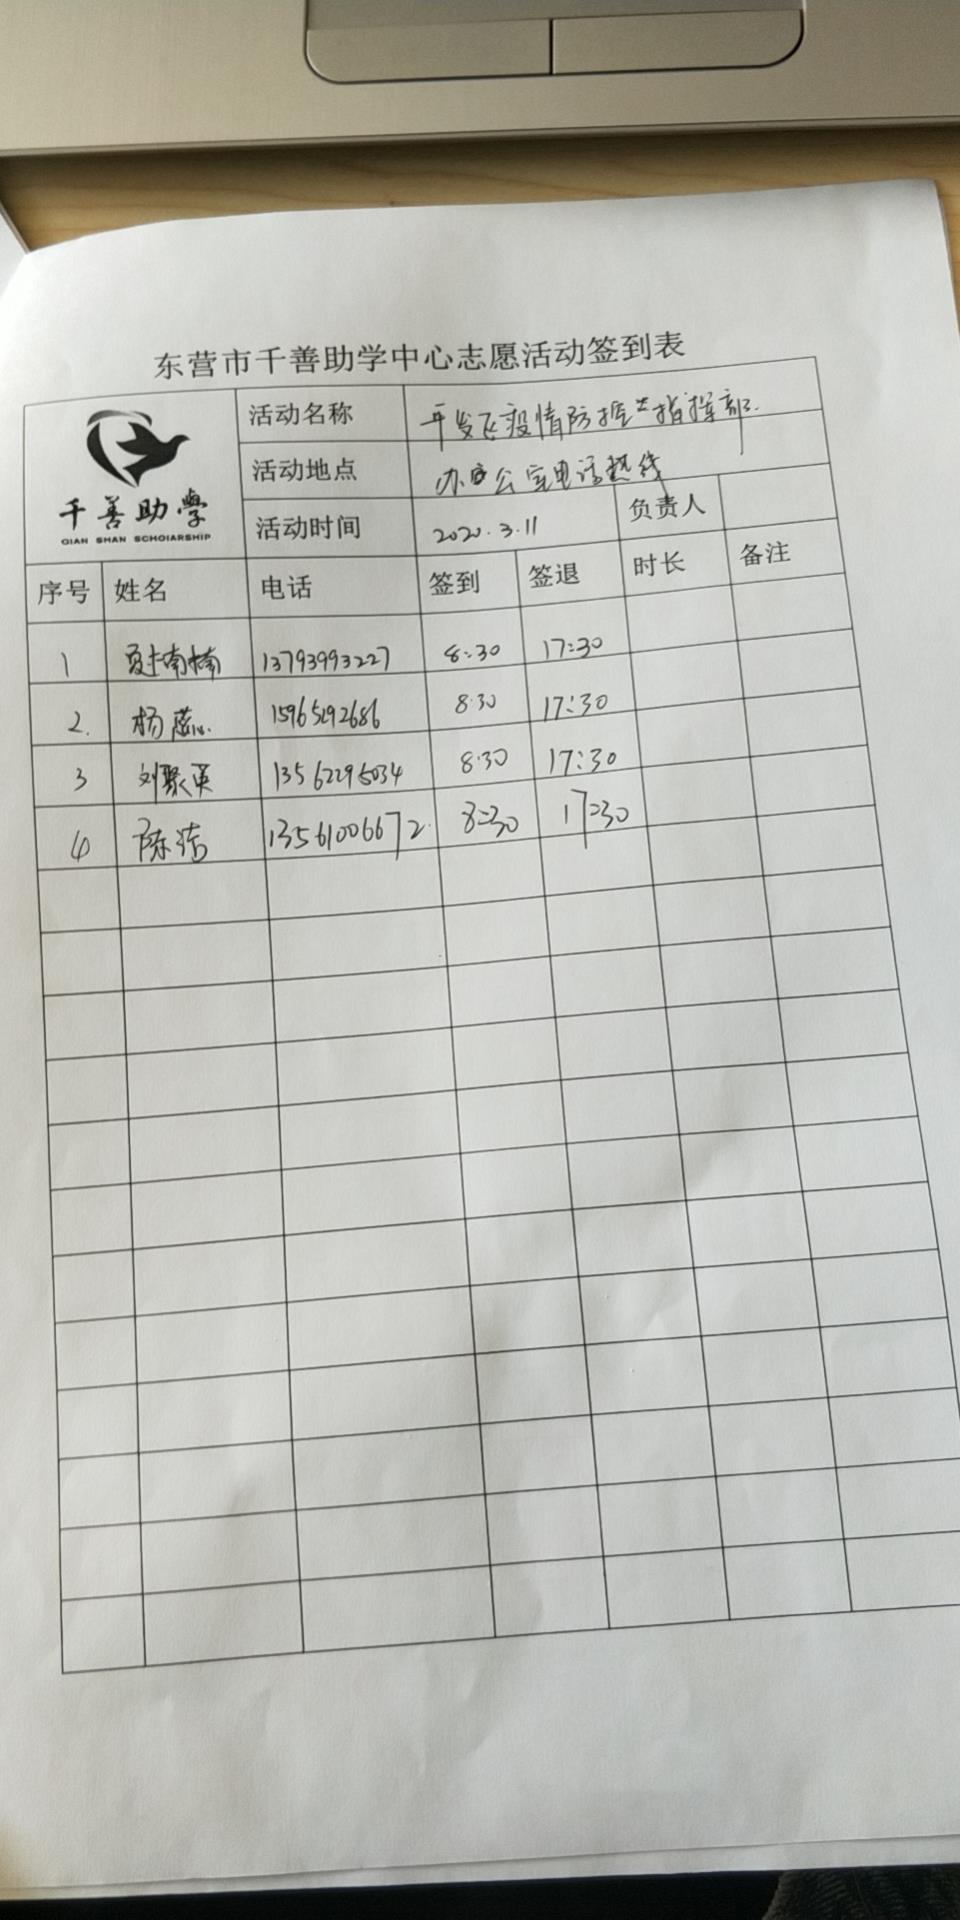 东营市千善助学中心志愿活动签到表
千善助學
QIAN SHAN SCHOIARSHIP
活动名称 开发区疫情防控指挥部
活动地点 办公室电话热线
活动时间 2020.3.11 负责人
序号 姓名 电话 签到 签退 时长 备注
1 楠楠 13793993227 8:30 17:30
2. 杨蕊 15965292686 8:30 17:30
3 刘聚英 13562295034 8:30 17:30
4 陈洁 13561006672 8:30 17:30